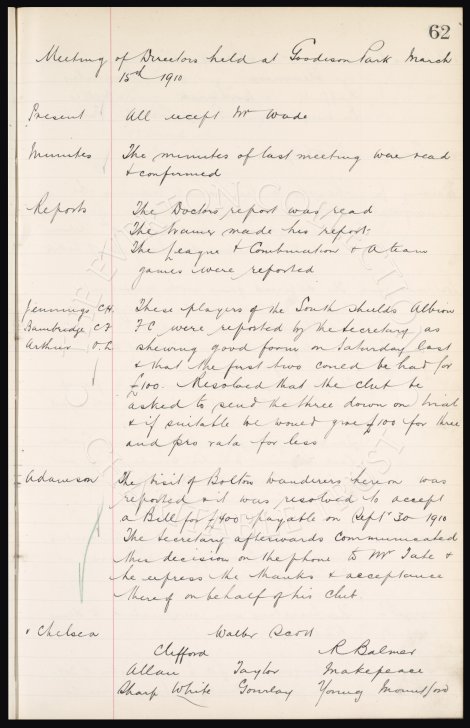 62
Meeting of Directors held at Goodison Park March
15th 1910
Present All except Mr Wade
Minutes The minutes of last meeting were read
& confirmed
Reports The Doctors report was read
The trainer made his report.
The League & Combination & A team
games were reported
Jennings C.H. These players of the South Shields Albion
Bainbridge C.F. F C were reported by the Secretary as
Arthur O.L. shewing good form on Saturday last
& that the first two could be had for
£100. Resolved that the club be
asked to send the three down on trial
& if suitable we would give £100 for three
and pro rata for less
Adamson The visit of Bolton Wanderers hereon was
reported & it was resolved to accept
a Bill for £400 payable on Septr 30 1910
The Secretary afterwards communicated
this decision on the phone to Mr Tate &
he express the thanks & acceptance
thereof on behalf of his club
v Chelsea Walter Scott
Clifford R Balmer
Allan Taylor Makepeace
Sharp White Gourlay Young Mountford